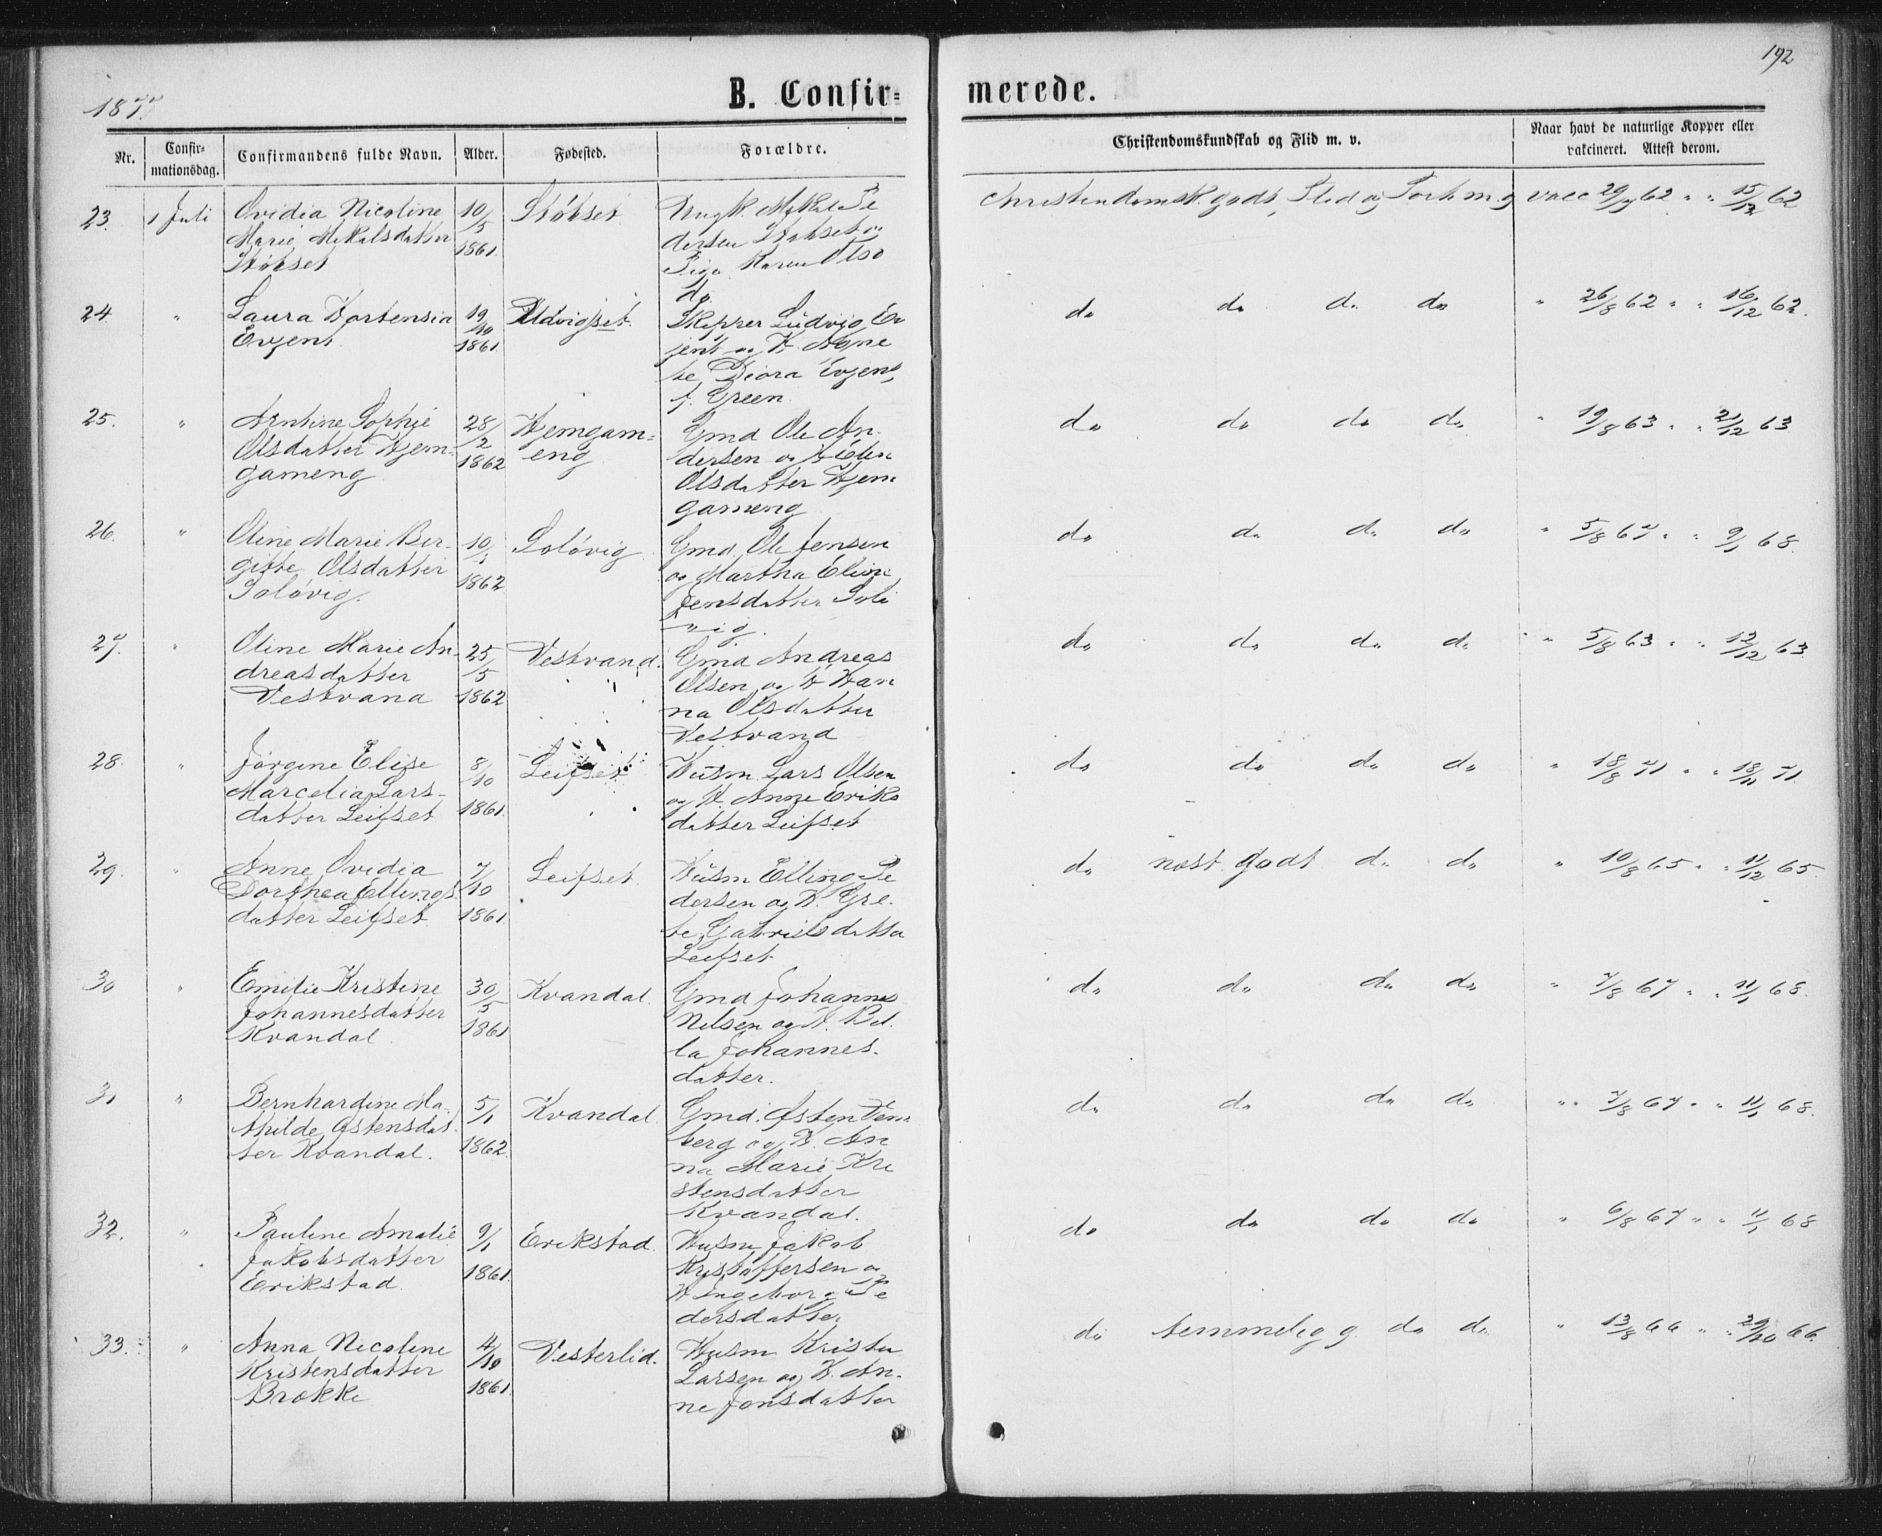 192
1877.
B. Confir=
merede.
Nr.
Confir-
mationsdag.
Confirmandens fulde Navn.
Alder.
Fødested.
Forældre.
Christendomskundskab og Flid m. v.
Naar havt de naturlige Kopper eller
vakcineret. Attest derom.
23. 1 Juli
Ovidia Nicoline
Marie Mikalsdatter
Støbset
10/5
1861.
Støbset
Ungk. Mikal Pe
dersen Støbset og
Pige Karen Olsd
do
Christendomsk godt, Flid og Forh m g
vacc 29/9 62 " " 15/12 62
24. "
Laura Hortensia
Evjent
19/10
1861
Ludvigset
Skipper Ludvig Ev
jent og H. Agne
te Diora Evjent,
f. Green
do do do do
" 26/8 62 " " 16/12 62.
25. "
Arntine Sophie
Olsdatter Hjem-
gameng
28/2
1862
Hjemgam=
eng
Gmd Ole An-
dersen og H Elen
Olsdatter Hjem
gameng
do do do do
" 19/8 63 " " 21/12 63
26. "
Oline Marie Ber-
gitte Olsdatter
Soløvig.
10/1
1862
Soløvig
Gmd Ole Jensen
og Martha Eline
Jensdatter Solø
vig.
do do do do
" 5/8 67 " " 9/1 68.
27. "
Oline Marie An-
dreasdatter
Vestvand
25/5
1862
Vestvand.
Gmd Andreas
Olsen og H Han
na Olsdatter
Vestvand
do do do do
" 5/8 63 " " 12/12 63.
28. "
Jørgine Elise
Marcelia Lars-
datter Leifset
8/10
1861.
Leifset
Husm Lars Olsen
og H. Anne Eriks
datter Leifset
do do do do
" 18/8 71 " " 18/11 71.
29. "
Anne Ovidia
Dorthea Ellings
datter Leifset
7/10
1861
Leifset.
Husm Elling Pe
dersen og H. Gre-
te Gabrielsdatter
Leifset
do næst godt do do
" 10/8 65 " " 11/12 65
30 "
Emilie Kristine
Johannesdatter
Kvandal
30/5
1861
Kvandal.
Gmd Johannes
Nilsen og H. Bel-
la Johannes-
datter.
do do do do
" 7/8 67 " " 11/1 68.
31 "
Bernhardine Ma-
thilde Østensdat
ter Kvandal.
5/1
1862.
Kvandal
Gmd. Østen
berg og H. An
na Marie Kri
stensdatter
Kvandal.
do do do do
" 7/8 67 " " 11/1 68.
32. "
Pauline Amalie
Jakobsdatter
Erikstad
9/1
1861.
Erikstad.
Husm Jakob
Kristoffersen og
H Ingeborg Pe
dersdatter
do do do do
" 6/8 67 " " 11/1 68
33. "
Anna Nicoline
Kristensdatter
Brokke
4/10
1861.
Vesterlid.
Husm Kristen
Larsen og H. An-
ne Jonsdatter
do temmelig g. do do
" 13/8 66 " " 29/10 66.